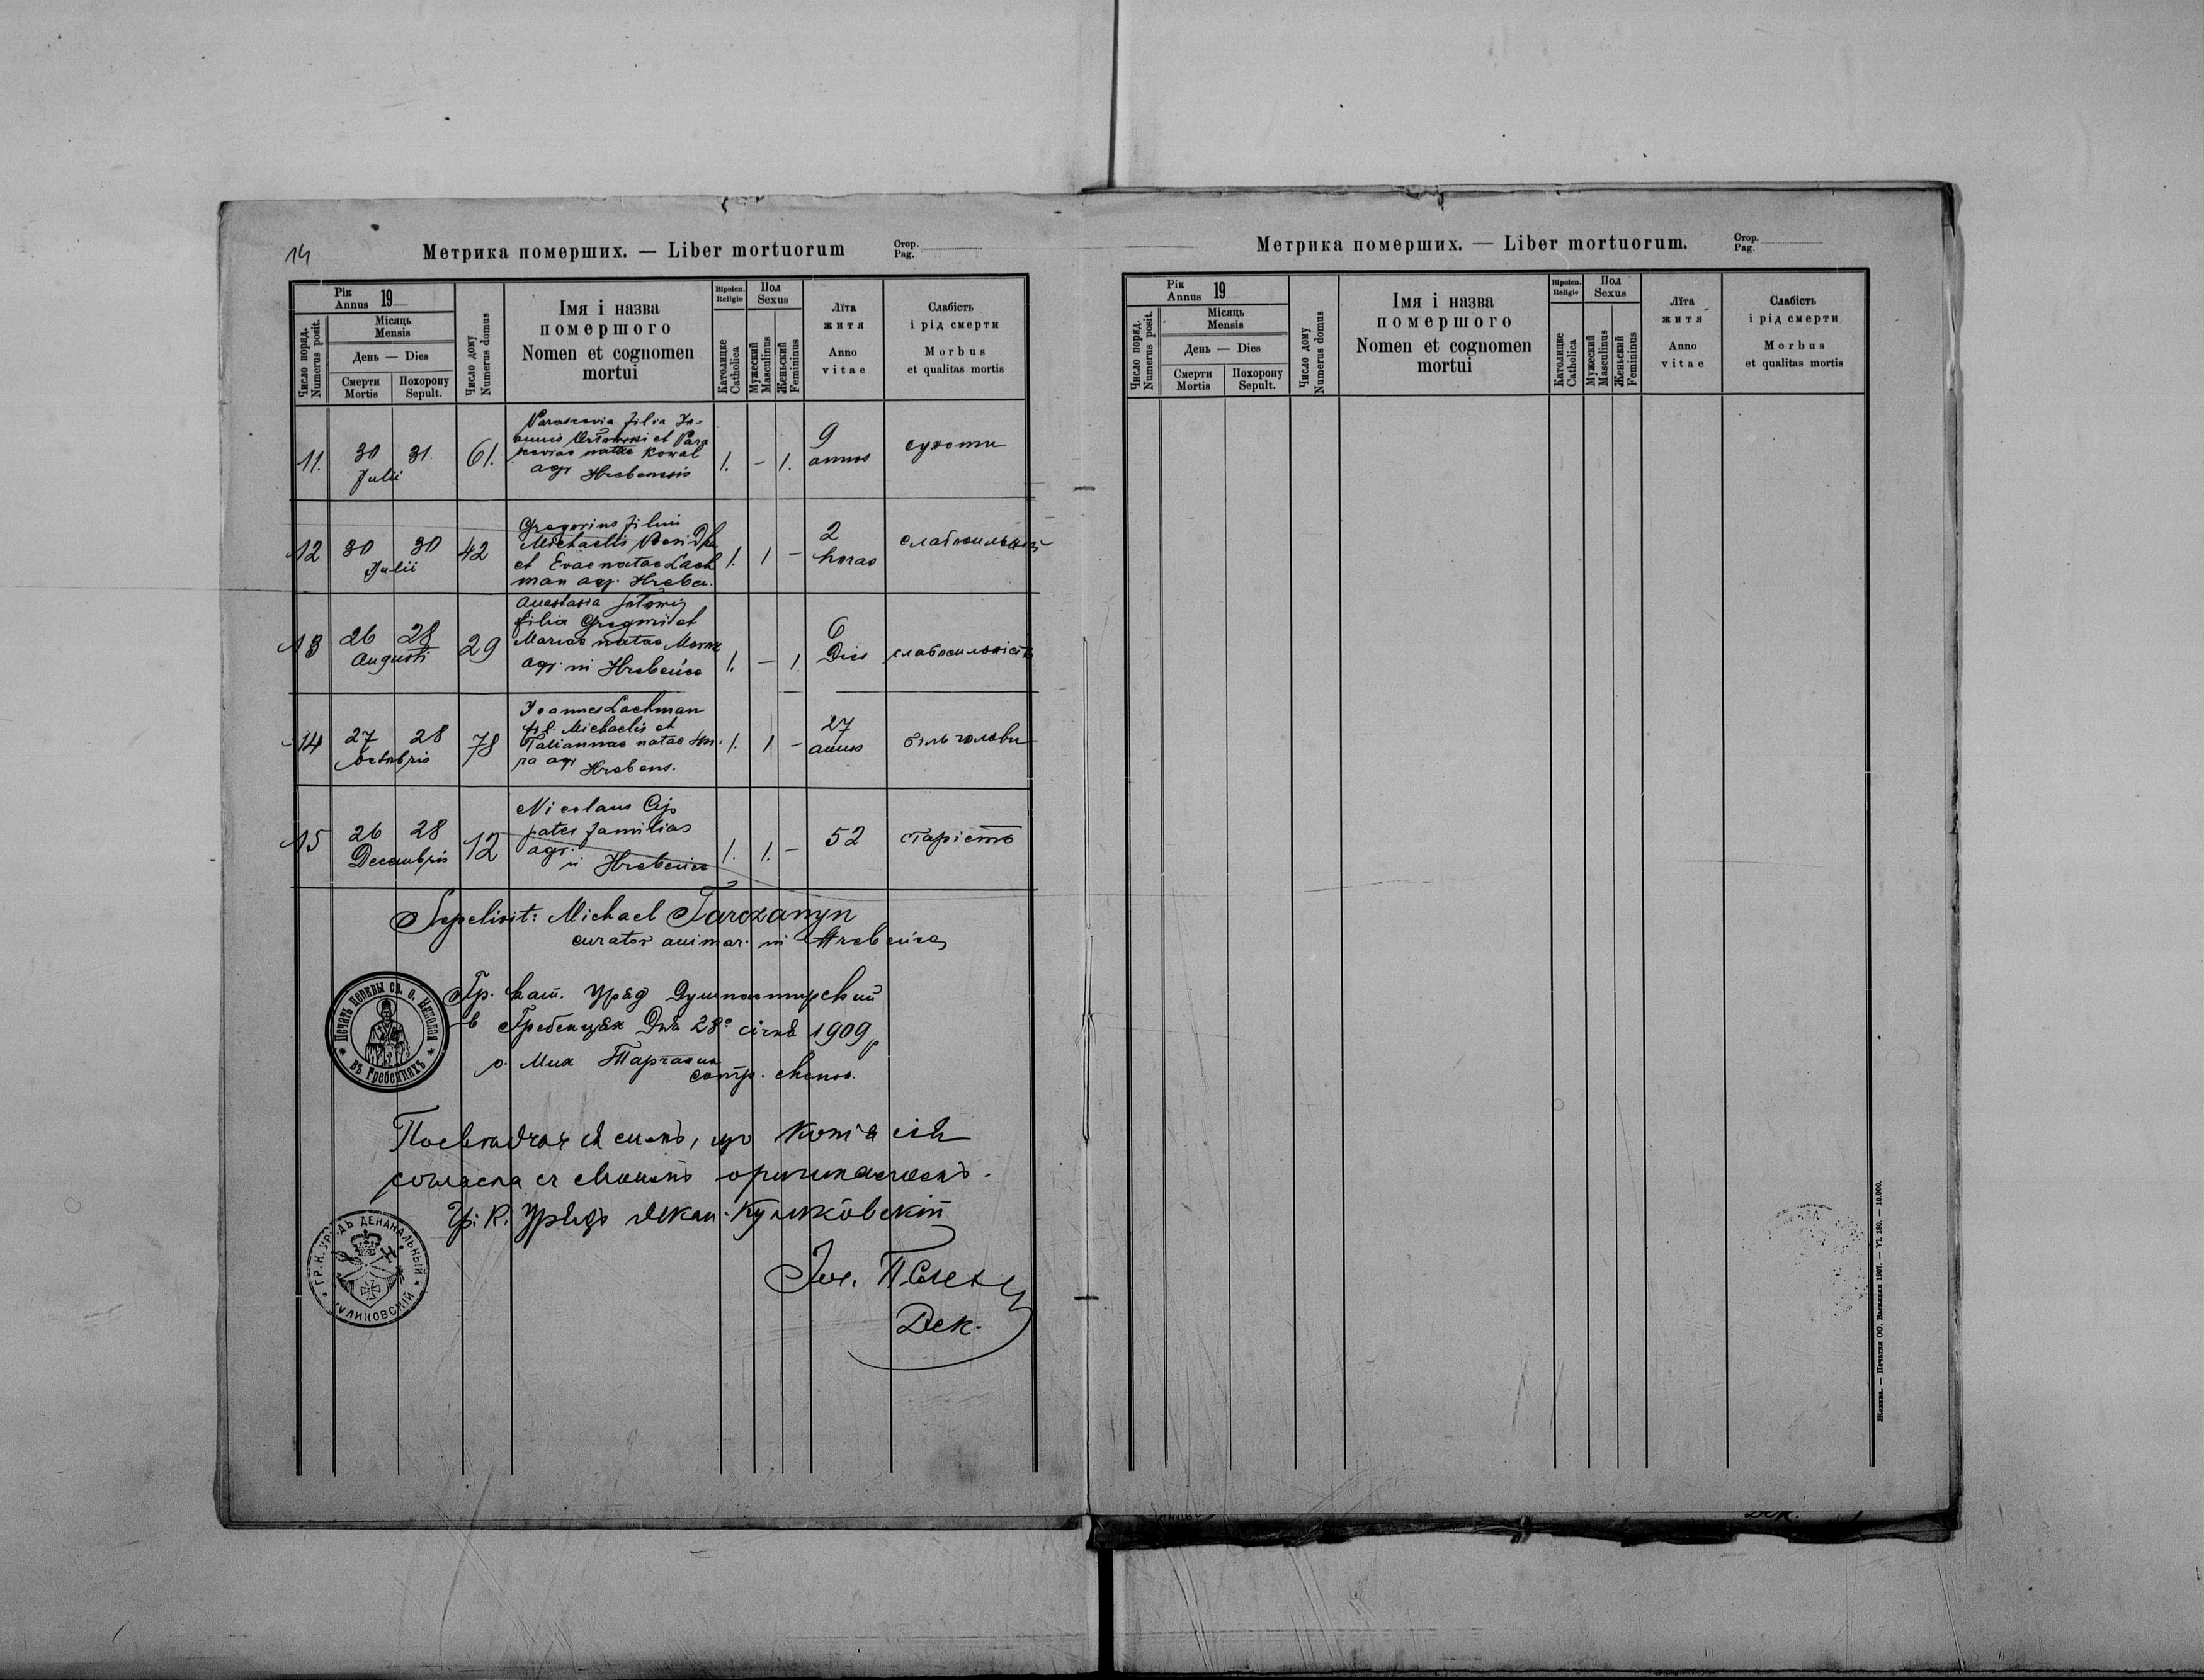 14
Метрика померших. — Liber mortuorum
Стор.
Pag.
Рік
Annus 19
Місяць
Mensis
День — Dies
Число поряд.
Numerus posit.
Смерти
Mortis
Похорону
Sepult.
Число дому
Numerus domus
Імя і назва
помершого
Nomen et cognomen
mortui
Віроісп.
Religio
Католицке
Catholica
Пол
Sexus
Мужеский
Masculinus
Женьский
Femininus
Лїта
житя
Anno
vitae
Слабість
і рід смерти
Morbus
et qualitas mortis
11. 30 31. Julii 61. 1. – 1. 9 annos сухоти
Parascevia filia Jo-
annis et Para
sceviae natae Kowal
agr Hrebensis
12 30 30 Julii 42 1. 1 – 2 horas
Gregorius filius
Michaelis
et Evae natae Lach
man agr. Hreben.
13 26 28 Augusti 29 1. – 1. 6 Dies слабосильність
Anastasia
filia Gregorii et
Mariae natae
agr. in Hrebeńce
14 27 28 Octobris 78 1. 1 – 27 annos біль голови
Joannes Lachman
fil. Michaelis et
Tatiannae natae
ra agr Hrebens.
15 26 28 Decembris 12 1. 1. – 52 старість
Nicolaus Cip
pater familias
agr.
in Hrebeńce
Sepelivit: Michael Tarczanyn
curator animar. in Hrebeńce
Гр. кат. Уряд Душпастирский
в Гребенцях Дня 28º січня 1909 р
о. Мих Тарчанин
сотр. експ.
Печать церквы св. о. Николая
въ Гребенцяхъ
Посвідчає ся симъ, що копія сія
согласна єсть съ оригиналомъ.
Гр. К. Урядъ декан. Куликôвскій
ГР. К. УРЯДЪ ДЕКАНАЛЬНЫЙ
КУЛИКОВСКІЙ
Дек.
Метрика померших. — Liber mortuorum.
Стор.
Pag.
Рік
Annus 19
Місяць
Mensis
День — Dies
Число поряд.
Numerus posit.
Смерти
Mortis
Похорону
Sepult.
Число дому
Numerus domus
Імя і назва
помершого
Nomen et cognomen
mortui
Віроісп.
Religio
Католицке
Catholica
Пол
Sexus
Мужеский
Masculinus
Женьский
Femininus
Лїта
житя
Anno
vitae
Слабість
і рід смерти
Morbus
et qualitas mortis
Жовква. — Печатня ОО. Василиян 1907. — VI. 180. — 10.000.
Дек.